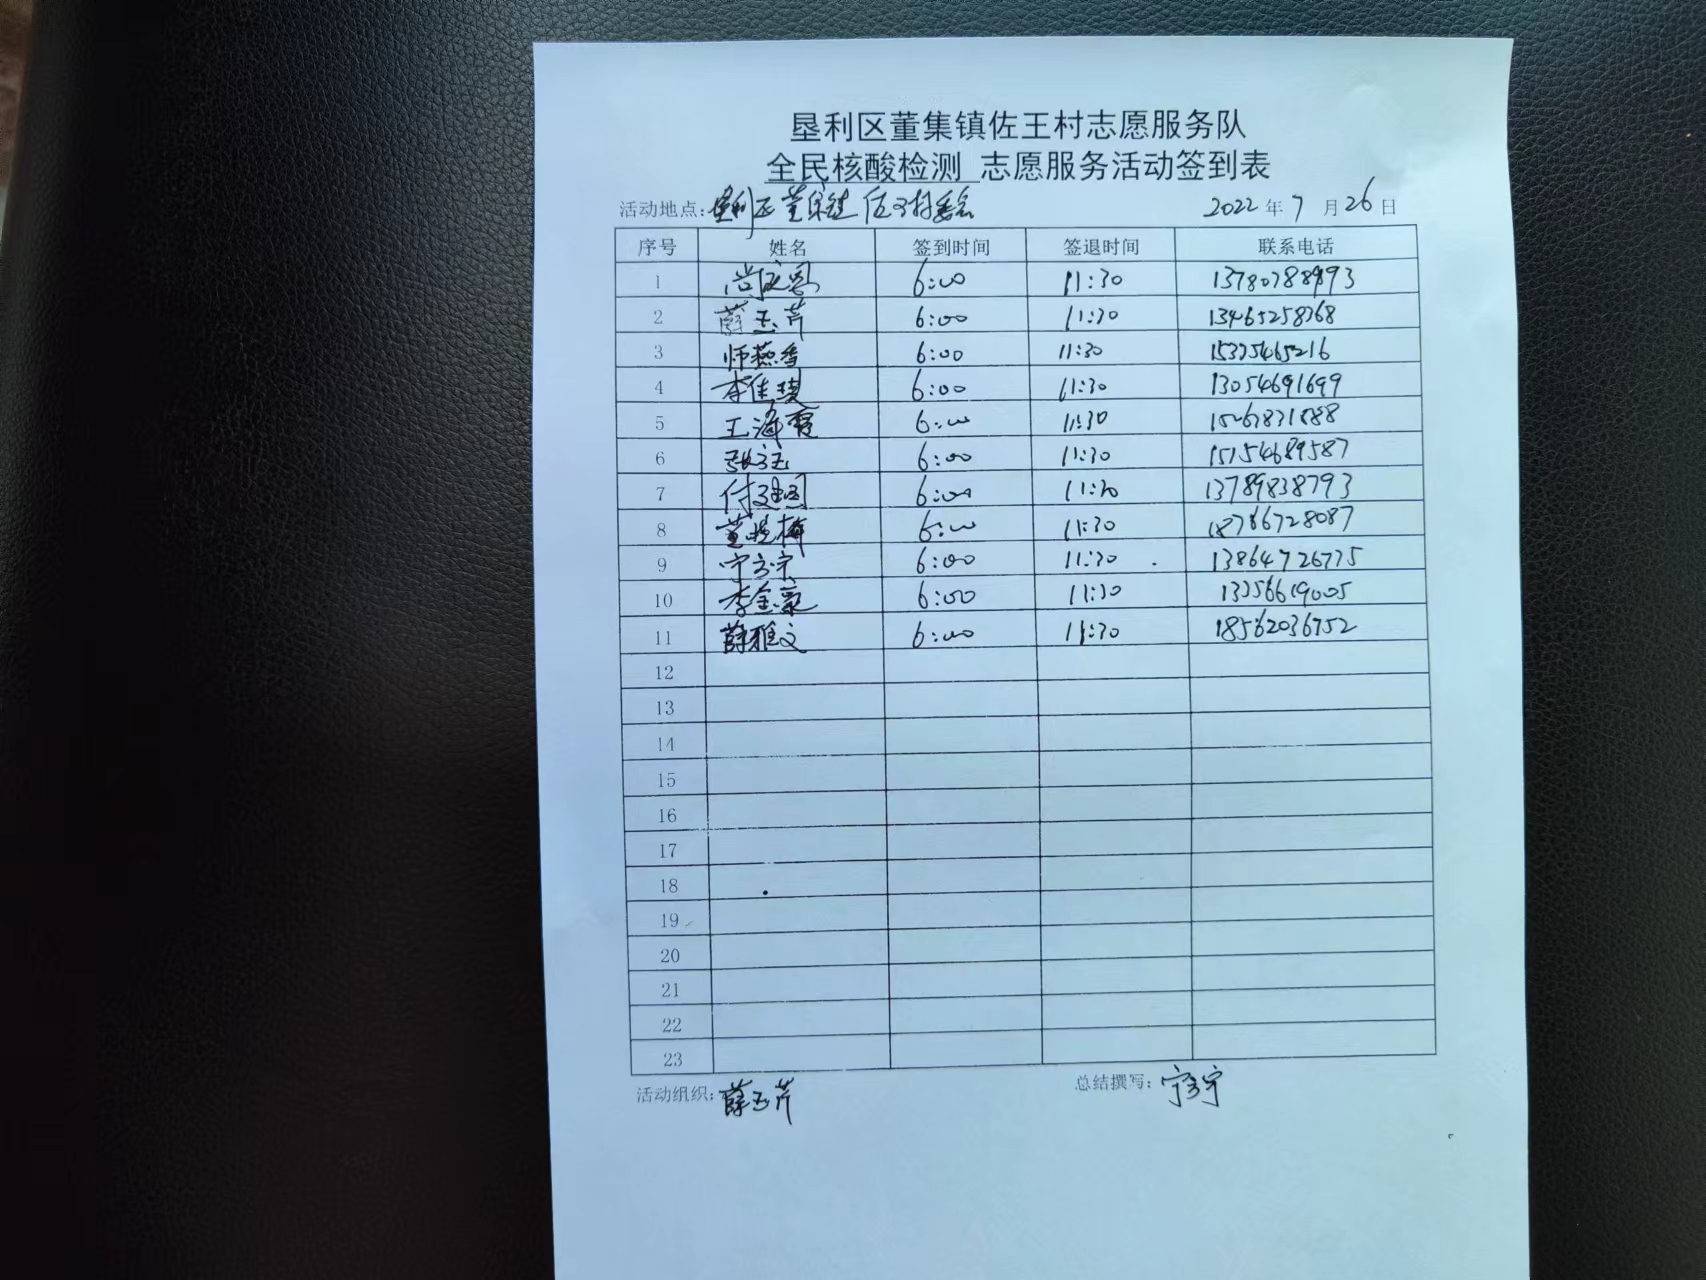 垦利区董集镇佐王村志愿服务队
全民核酸检测 志愿服务活动签到表
活动地点: 垦利区董集镇佐王村委会 2022 年 7 月 26 日
序号 姓名 签到时间 签退时间 联系电话
1 6:00 11:30
2 薛玉芹 6:00 11:30 13465258768
3 师燕香 6:00 11:30 15375465216
4 李佳琪 6:00 11:30 13054691699
5 王海霞 6:00 11:30
6 6:00 11:30 15154689587
7 付建国 6:00 11:30 13789838793
8 董晓梅 6:00 11:30 18786728087
9 宁方宇 6:00 11:30 13864726775
10 李金豪 6:00 11:30 13356619005
11 薛雅文 6:00 11:30 18562036752
12
13
14
15
16
17
18
19
20
21
22
23
活动组织: 薛玉芹 总结撰写: 宁方宇